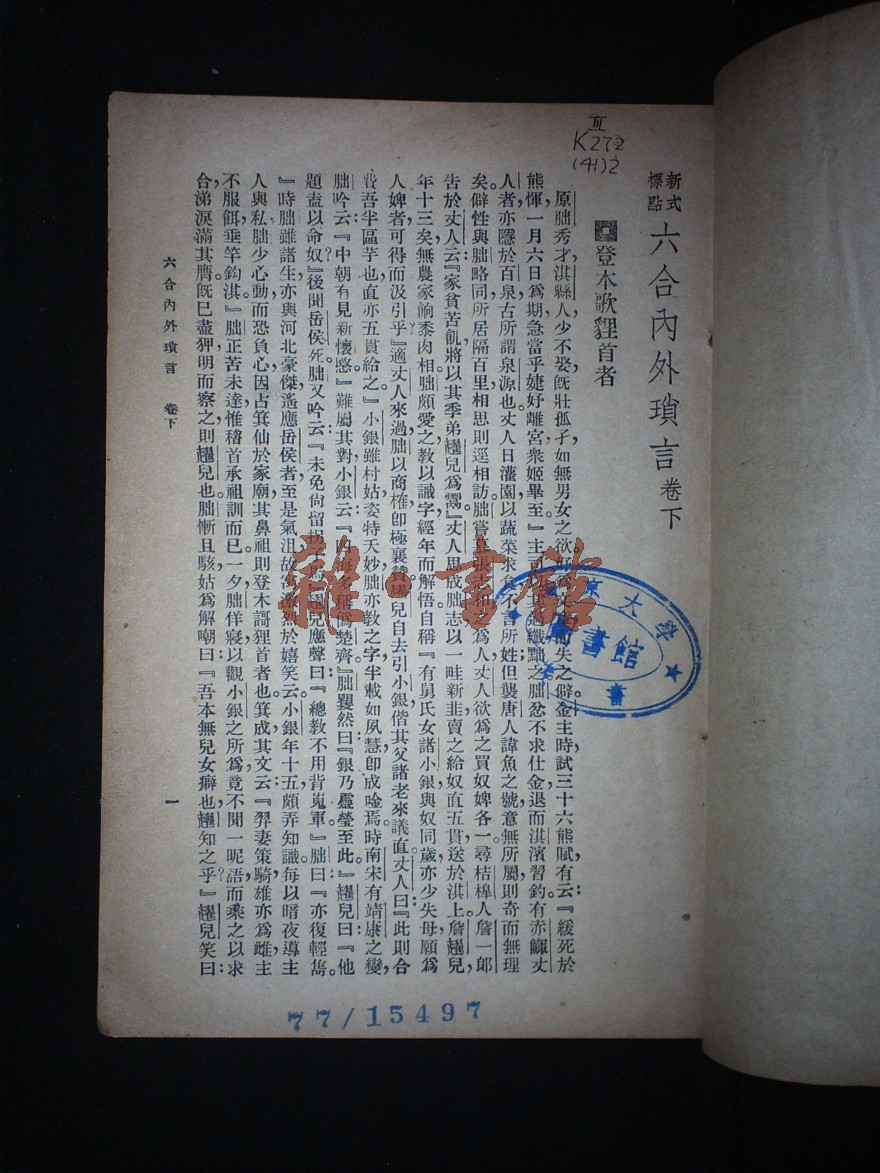 III
K27
(41)2
新式標點
六合內外瑣言 卷下
登木歌貍首者
原朏秀才淇縣人少不娶旣壯孤子如無男女之欲失之僻金主時試三十六熊賦有云『緩死於
熊惲一月六日爲期急當乎婕妤離宮衆姬畢至』主纖黜之朏忿不求仕金退而淇濱習釣有赤鯶丈
人者亦隱於百泉古所謂泉源也丈人日灌園以蔬菜求食不所姓但襲唐人諱魚之號意無所屬則奇而無理
矣僻性與朏略同所居隔百里相思則逕相訪朏嘗張志和之爲人丈人欲爲之買奴婢各一尋桔槹人詹一郎
告於丈人云『家貧苦飢將以其季弟趯兒爲鬻』丈人思成朏志以一畦新韭賣之給奴直五貫送於淇上詹趯兒
年十三矣無農家餉黍肉相朏頗愛之教以識字經年而解悟自稱『有舅氏女諸小銀與奴同歲亦少失母願爲
人婢者可得而汲引乎』適丈人來過朏以商榷卽極襄贊兒自去引小銀偕其父諸老來議直丈人曰『此則合
吾半區芋也直亦五貫給之』小銀雖村姑姿特天妙朏亦教之字半載如夙慧卽成唫焉時南宋有靖康之變
朏吟云『中朝有見新懷愍』難屬其對小銀云『四海多稱僞楚齊』朏矍然曰『銀乃靈瑩至此』趯兒曰『他
題盍以命奴』後聞岳侯死朏又吟云『未免尙留拐子馬』趯兒應聲曰『總教不用背嵬軍』朏曰『亦復輕雋
』時朏雖諸生亦與河北豪傑遙應岳侯者至是氣沮故寓激烈於嬉笑云小銀年十五頗弄知識每以暗夜導主
人與私朏少心動而恐負心因占箕仙於家廟其鼻祖則登木謌貍首者也箕成其文云『羿妻策騎雄亦爲雌主
不服餌垂竿鈎淇』朏正苦未達惟稽首承祖訓而已一夕朏佯寢以觀小銀之所爲竟不聞一昵語而乘之以求
合涕淚滿其膺旣已盡狎明而察之則趯兒也朏慚且駭姑爲解嘲曰『吾本無兒女癖也趯知之乎』趯兒笑曰
六合內外瑣言 卷下
一
京大學
書館
書
雜·書館
77/15497